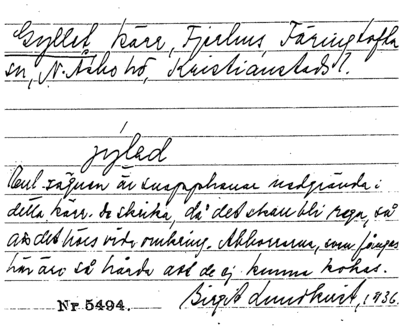 Gyllet, kärr, Fjerlus, Färingtofta
sn, N. Åsbo hd, Kristianstads l.
jýləd
Enl. sägnen är snapphanar nedgrävda i
detta kärr. De skrika, då det skall bli regn, så
att det höres vida omkring. Abborrarna, som fångas
här äro så hårda att de ej kunna kokas.
Nr 5494. Birgit Lundkvist, 1936.